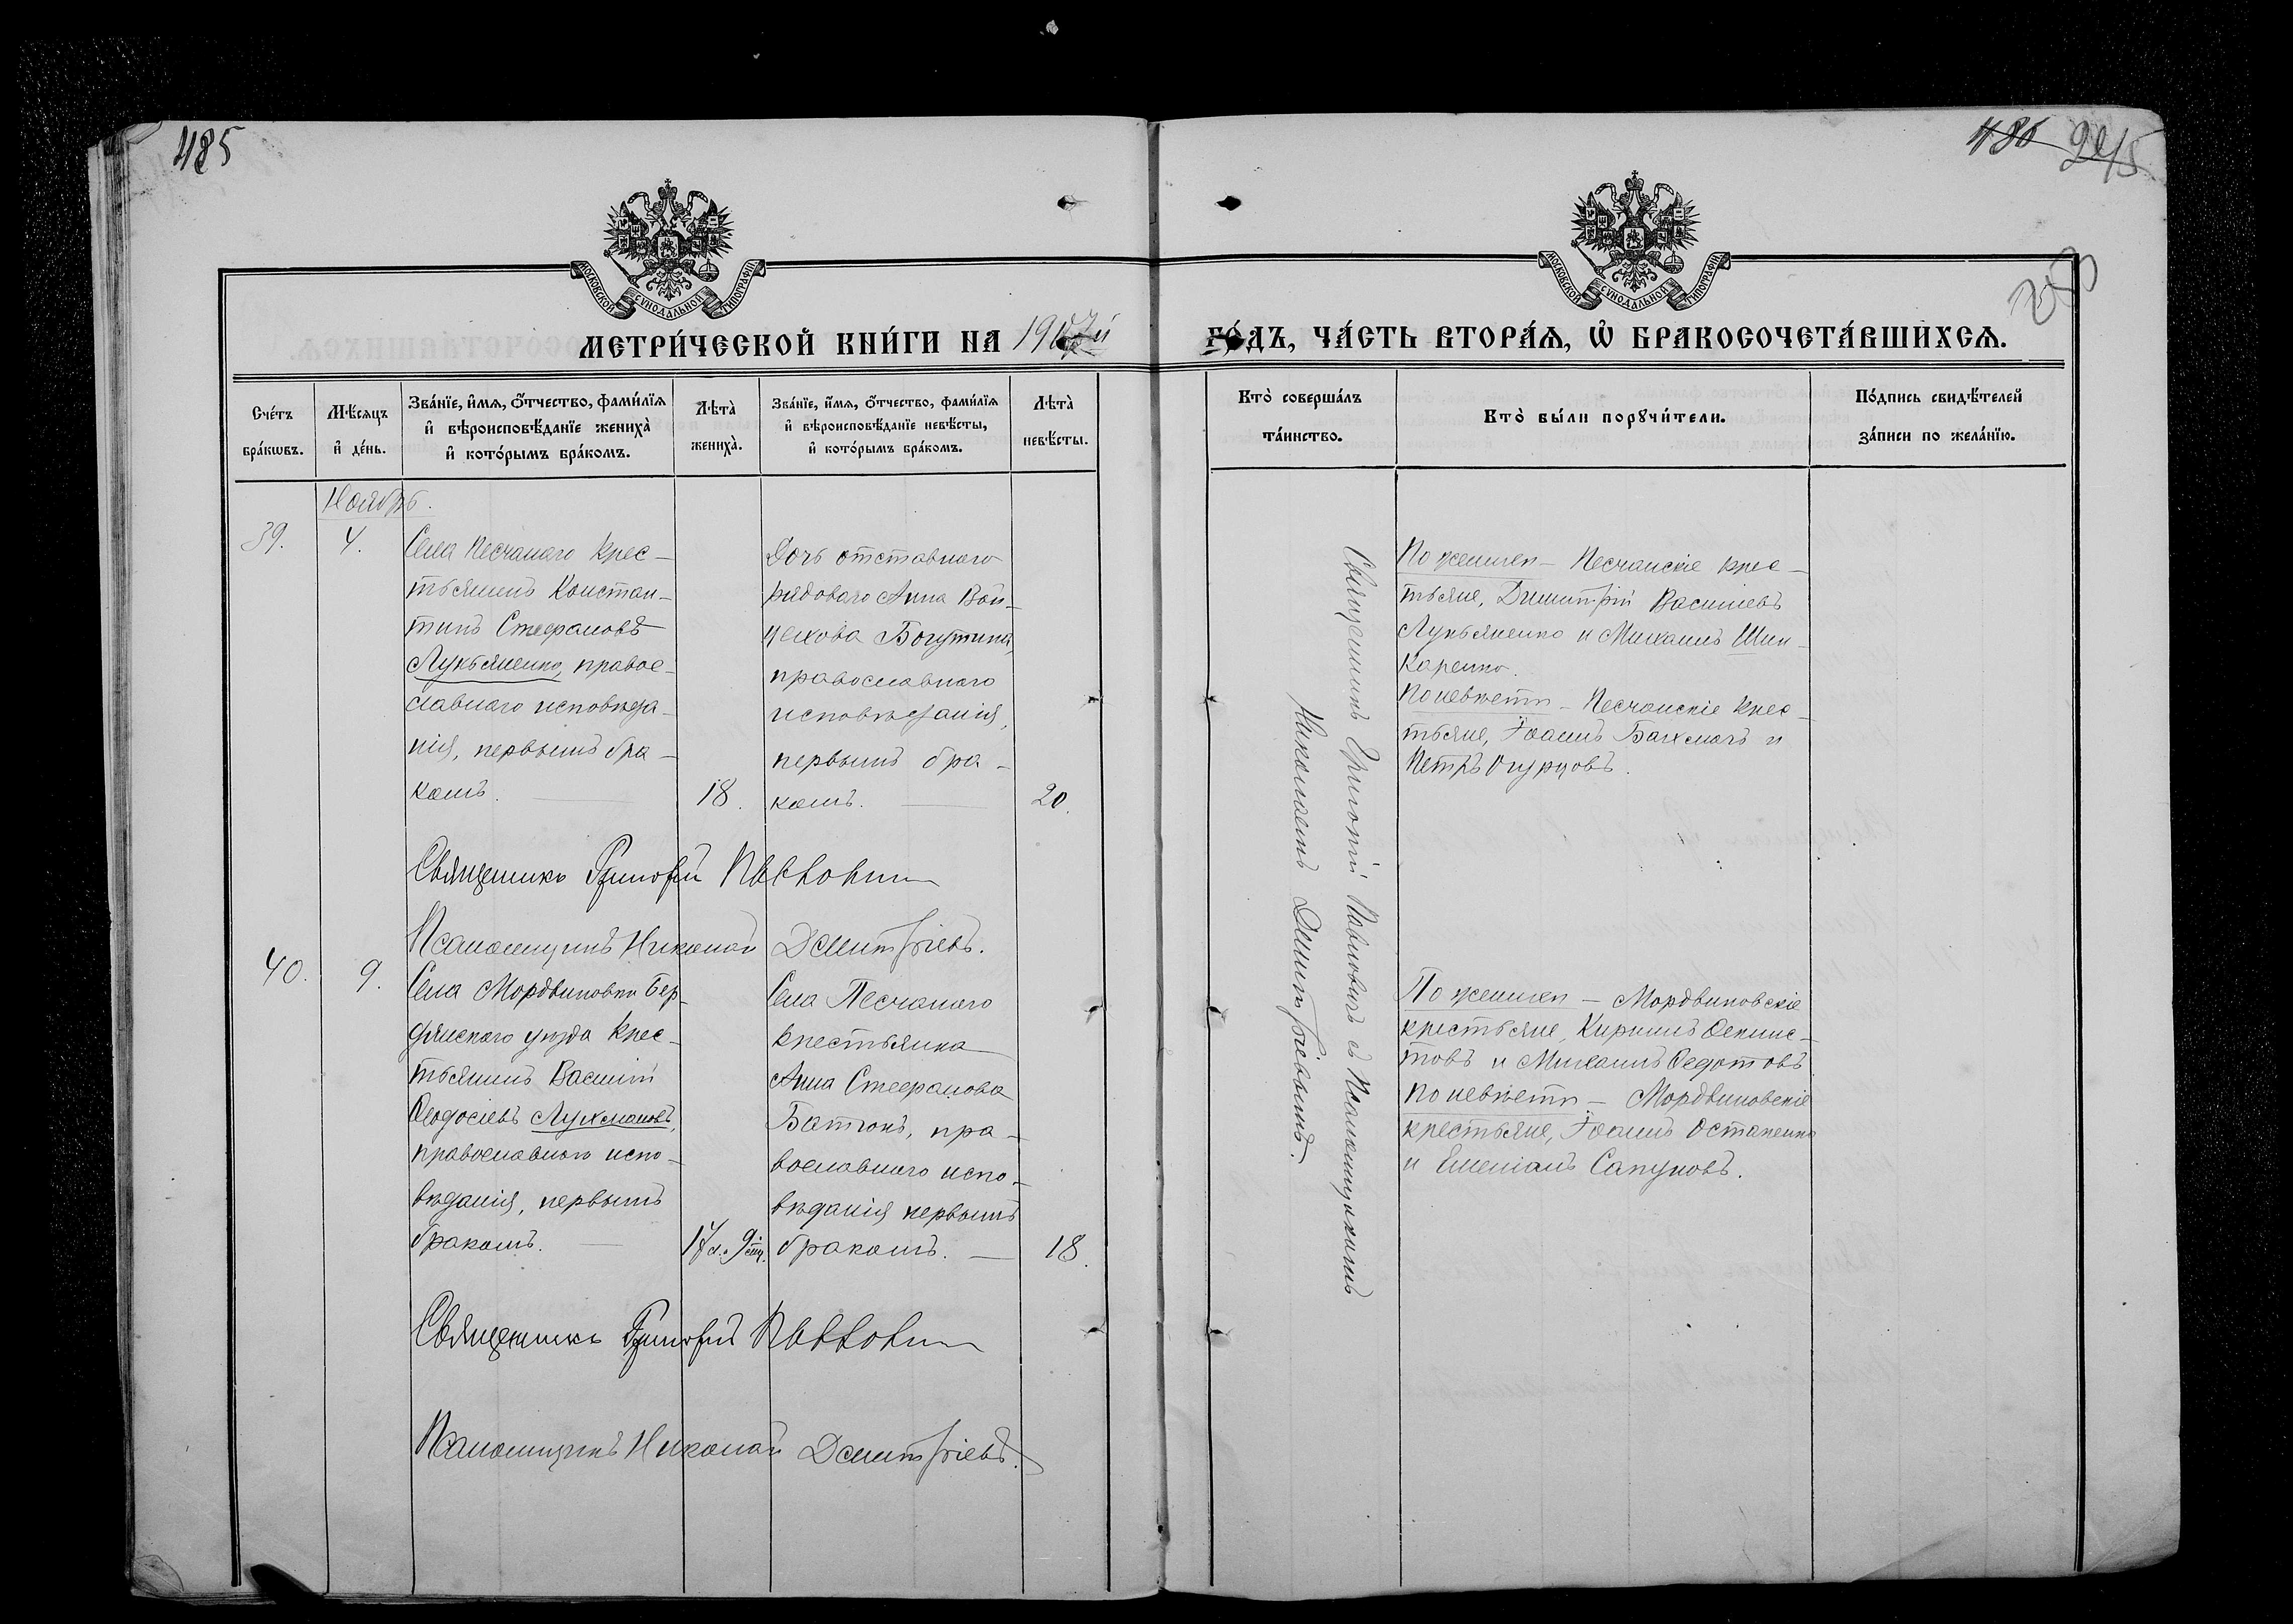 485
486 245
МОСКОВСКОЙ СѴНОДАЛЬНОЙ ТИПОГРАФІИ
МОСКОВСКОЙ СѴНОДАЛЬНОЙ ТИПОГРАФІИ
МЕТРИ́ЧЕСКОЙ КНИ́ГИ НА 1907й
ГО́ДЪ, ЧА́СТЬ ВТОРА́Ѧ, Ѡ҆ БРАКОСОЧЕТА́ВШИХСѦ.
Сче́тъ
бра́кѡвъ.
Мѣ́сѧцъ
и҆ де́нь.
Зва́нїе, и҆́мѧ, ѻ҆́тчество, фами́лїѧ
и҆ вѣроисповѣ́данїе жениха̀
и҆ кото́рымъ бра́комъ.
Лѣта̀
жениха̀.
Зва́нїе, и҆́мѧ, ѻ҆́тчество, фами́лїѧ
и҆ вѣроисповѣ́данїе невѣ́сты,
и҆ кото́рымъ бра́комъ.
Лѣта̀
невѣ́сты.
Кто̀ соверша́лъ
та́инство.
Кто̀ бы́ли порꙋчи́тели.
По́дпись свидѣ́телей
за́писи по жела́нїю.
Ноябрь.
39.
4.
Села Песчанаго крес-
тьянинъ Констан-
тинъ Стефановъ
Лукьяненко, правос-
лавнаго исповѣда-
нія, первымъ бра-
комъ.
18.
Дочь отставнаго
рядоваго Анна Вой-
цехова Богутина,
православнаго
исповѣданія,
первымъ бра-
комъ.
20.
Священникъ Григорій Павловичъ съ Псаломщикомъ
Николаемъ Димитріевымъ.
По женихѣ - Песчанскіе крес-
тьяне, Димитрій Васильевъ
Лукьяненко и Михаилъ Шин-
каренко.
По невѣстѣ - Песчанскіе крес-
тьяне, Іоаннъ Бахмачъ и
Петръ Огурцовъ.
Священникъ Григорій
Псаломщикъ Николай Димитріевъ.
40.
9.
Села Мордвиновки Бер-
дянскаго уѣзда крес-
тьянинъ Василій
Ѳеодосіевъ Лухмановъ,
православнаго испо-
вѣданія, первымъ
бракомъ.
17 л. 9 м.
Села Песчанаго
крестьянка
Анна Стефанова
Батюкъ, пра-
вославнаго испо-
вѣданія первымъ
бракомъ.
18.
По женихѣ - Мордвиновскіе
крестьяне, Кириллъ
и Михаилъ Ѳедотовъ
По невѣстѣ - Мордвиновскіе
крестьяне, Іоаннъ Остапенко
и Емеліанъ Сапуновъ.
Священникъ Григорій
Псаломщикъ Николай Димитріевъ.